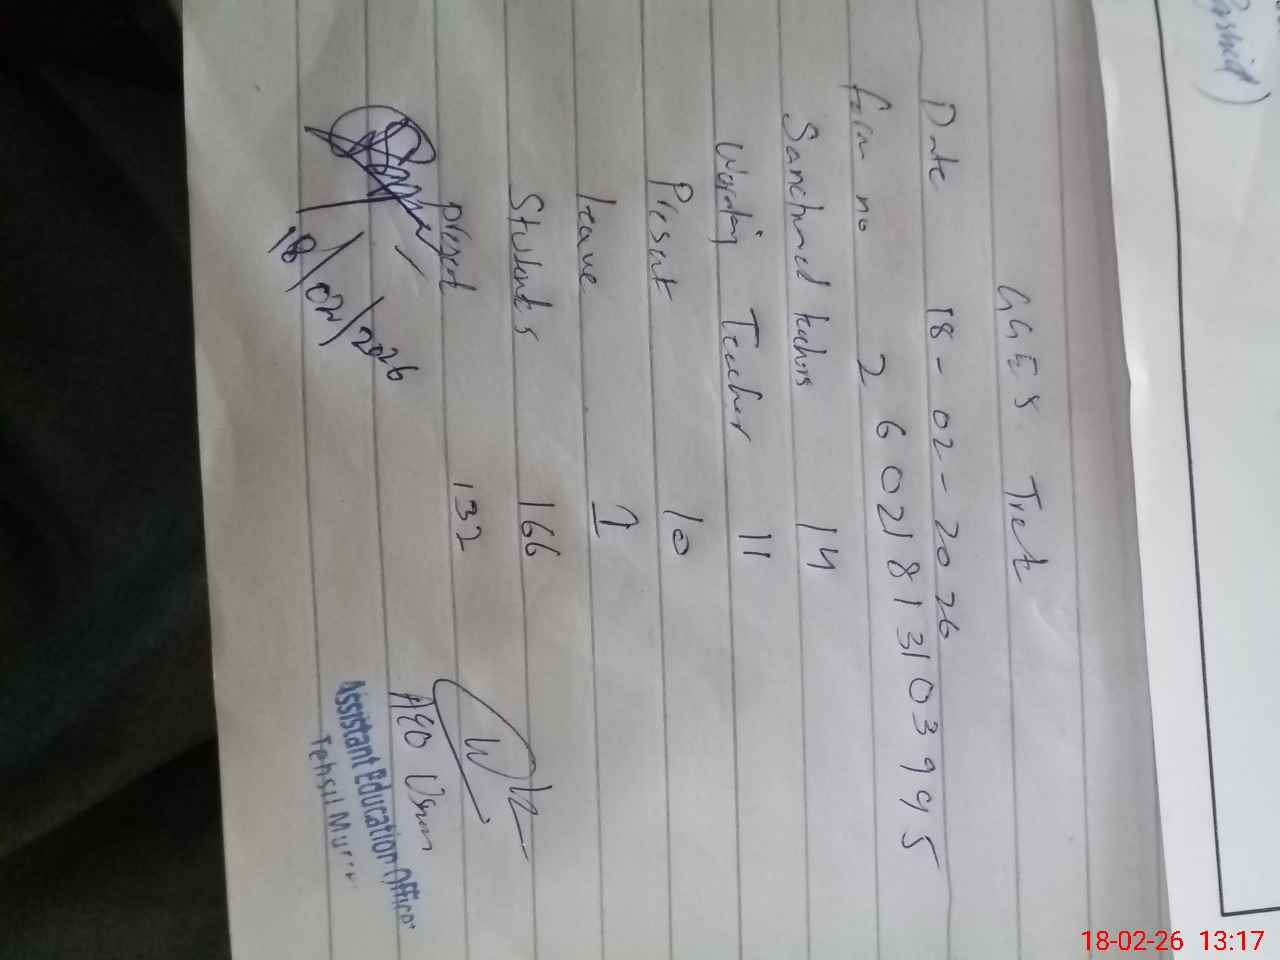 Rashid)
GGES Tret
Date 18-02-2026
form no 2602181310 3995
Sanctined teachers 14
Working Teacher 11
Present 10
leave 1
Students 166
present 132
18/02/2026
AEO
Assistant Education Officer
Tehsil Murree
18-02-26 13:17